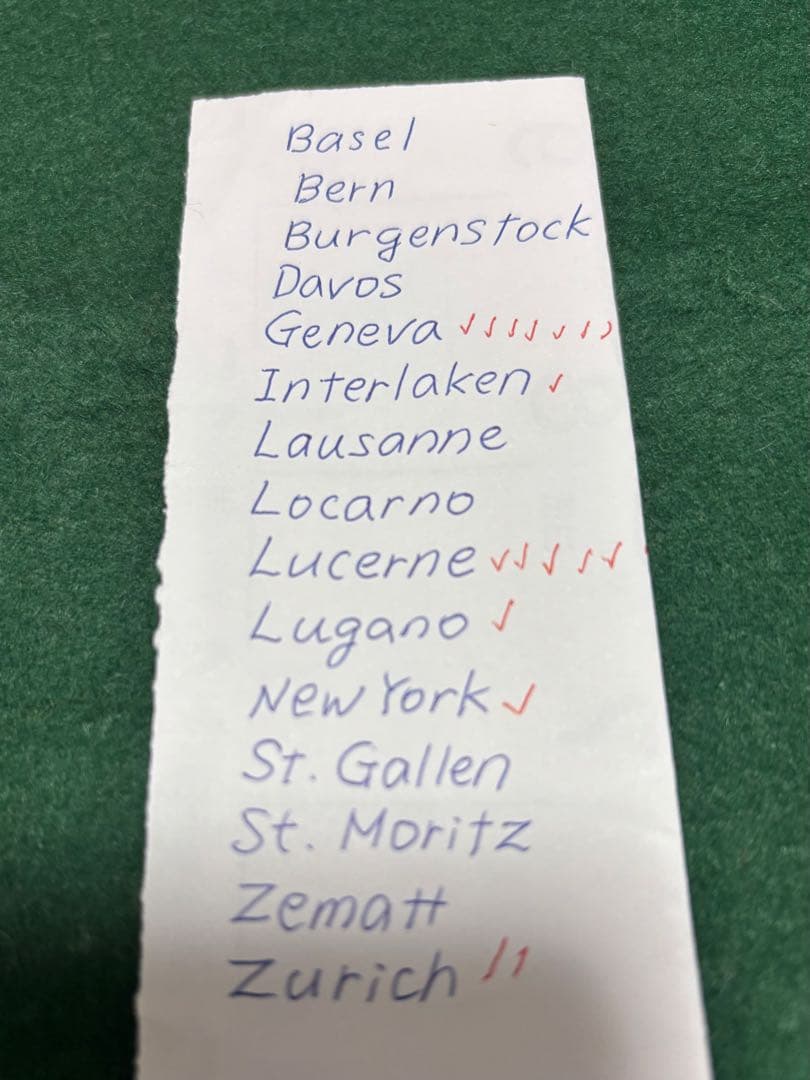 Basel
Bern
Burgenstock
Davos
Geneva ✓✓✓✓✓✓✓
Interlaken ✓
Lausanne
Locarno
Lucerne ✓✓✓✓✓
Lugano ✓
New York ✓
St. Gallen
St. Moritz
Zematt
Zurich ✓✓